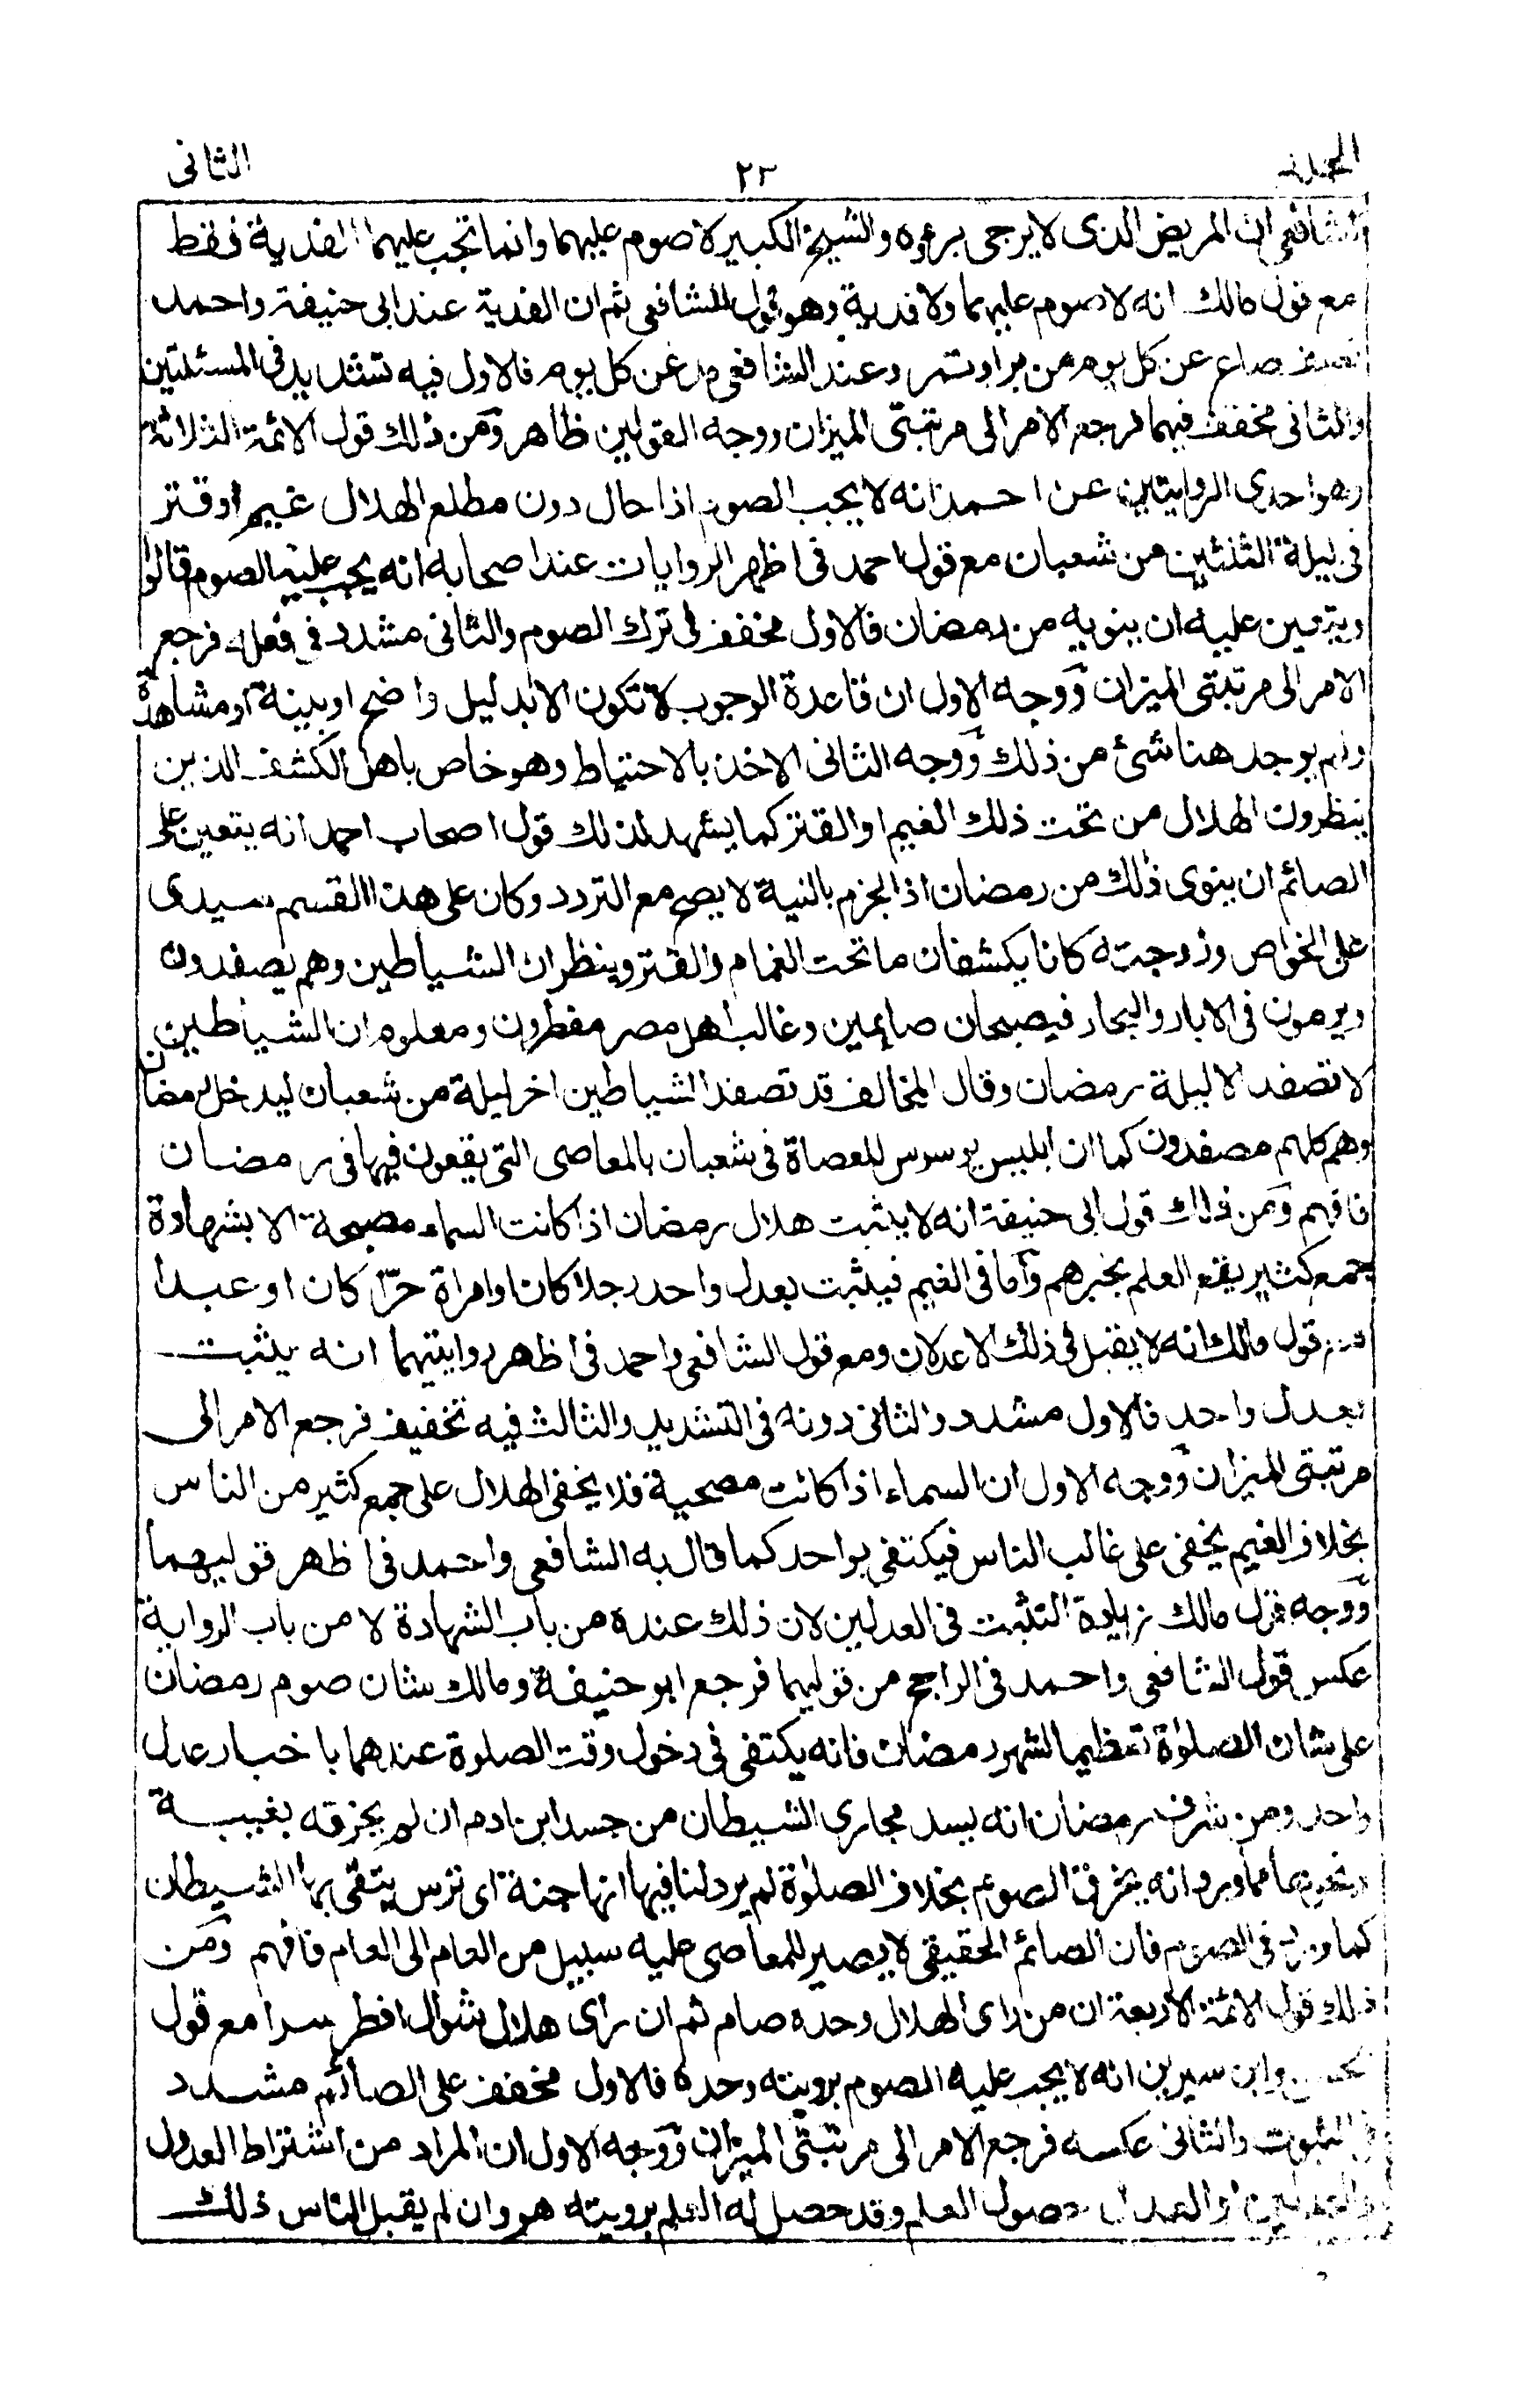 المجلد ٢٣ الثانى
الشافعى ان المريض الذى لا يرجى برءوه والشيخ الكبير لا صوم عليهما وانما تجب عليهما الفدية فقط
مع قول مالك انه لا صوم عليهما ولا فدية وهو قول للشافعى ثم ان الفدية عند ابى حنيفة واحمد
نصف صاع عن كل يوم من بر او تمر وعند الشافعى مد عن كل يوم فالاول فيه تشديد فى المسئلتين
والثانى مخفف فيهما فرجع الامر الى مرتبتى الميزان ووجه القولين ظاهر ومن ذلك قول الائمة الثلاثة
وهو احدى الروايتين عن احمد انه لا يجب الصوم اذا حال دون مطلع الهلال غيم او قتر
فى ليلة الثلثين من شعبان مع قول احمد فى اظهر الروايات عند اصحابه انه يجب عليه الصوم قالوا
ويتعين عليه ان ينويه من رمضان فالاول مخفف فى ترك الصوم والثانى مشدد فى فعله فرجع
الامر الى مرتبتى الميزان ووجه الاول ان قاعدة الوجوب لا تكون الا بدليل واضح او بينة او مشاهدة
ولم يوجد هنا شئ من ذلك ووجه الثانى الاخذ بالاحتياط وهو خاص باهل الكشف الذين
ينظرون الهلال من تحت ذلك الغيم او القتر كما يشهد لذلك قول اصحاب احمد انه يتعين على
الصائم ان ينوى ذلك من رمضان اذ الجزم بالنية لا يصح مع التردد وكان على هذا القسم سيدى
على الخواص وزوجته كانا يكشفان ما تحت الغمام والقتر وينظران الشياطين وهم يصفدون
ويرمون فى الابار والبحار فيصبحان صايمين وغالب اهل مصر مفطرون ومعلوم ان الشياطين
لا تصفد الا ليلة رمضان وقال المخالف قد تصفد الشياطين اخر ليلة من شعبان ليدخل رمضان
وهم كلهم مصفدون كما ان ابليس يوسوس للعصاة فى شعبان بالمعاصى التى يقعون فيها فى رمضان
فافهم ومن ذلك قول ابى حنيفة انه لا يثبت هلال رمضان اذا كانت السماء مصحية الا بشهادة
جمع كثير يقع العلم بخبرهم واما فى الغيم فيثبت بعدل واحد رجلا كان او امراة حرا كان او عبدا
مع قول مالك انه لا يقبل فى ذلك الا عدلان ومع قول الشافعى واحمد فى اظهر روايتيهما انه يثبت
بعدل واحد فالاول مشدد والثانى دونه فى التشديد والثالث فيه تخفيف فرجع الامر الى
مرتبتى الميزان ووجه الاول ان السماء اذا كانت مصحية فلا يخفى الهلال على جمع كثير من الناس
بخلاف الغيم يخفى على غالب الناس فيكتفى بواحد كما قال به الشافعى واحمد فى اظهر قوليهما
ووجه قول مالك زيادة التثبت فى العدلين لان ذلك عنده من باب الشهادة لا من باب الرواية
عكس قول الشافعى واحمد فى الراجح من قوليهما فرجع ابو حنيفة ومالك شان صوم رمضان
على شان الصلوة تعظيما لشهر رمضان فانه يكتفى فى دخول وقت الصلوة عندهما باخبار عدل
واحد ومن شرف رمضان انه يسد مجارى الشيطان من جسد ابن ادم ان لم يخرقه بغيبة
ونحوها مما ورد انه يخرق الصوم بخلاف الصلوة لم يرد لنا فيها انها جنة اى ترس يتقى بها الشيطان
كما ورد فى الصوم فان الصائم الحقيقى لا يصير للمعاصى عليه سبيل من العام الى العام فافهم ومن
ذلك قول الائمة الاربعة ان من راى الهلال وحده صام ثم ان راى هلال شوال افطر سرا مع قول
الحسن وابن سيرين انه لا يجب عليه الصوم برويته وحده فالاول مخفف على الصائم مشدد
فى الثبوت والثانى عكسه فرجع الامر الى مرتبتى الميزان ووجه الاول ان المراد من اشتراط العدول
والعدلين او العدل حصول العلم وقد حصل له العلم برويته هو وان لم يقبل الناس ذلك